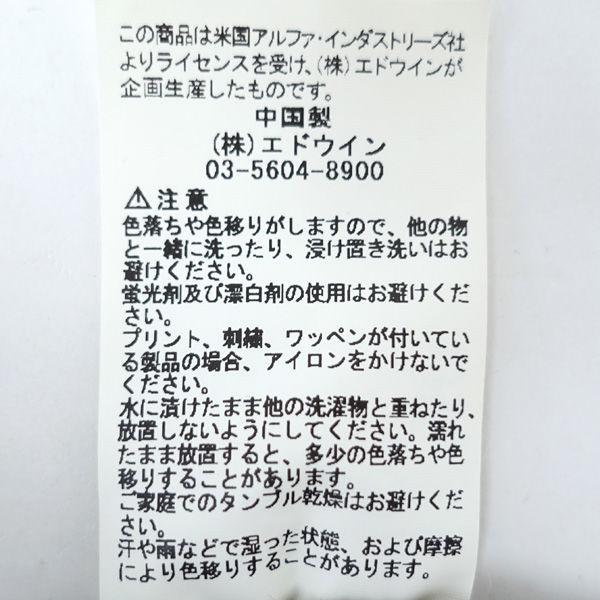 この商品は米国アルファ・インダストリーズ社
よりライセンスを受け、(株)エドウインが
企画生産したものです。
中国製
(株)エドウイン
03-5604-8900
⚠注意
色落ちや色移りがしますので、他の物
と一緒に洗ったり、浸け置き洗いはお
避けください。
蛍光剤及び漂白剤の使用はお避けくだ
さい。
プリント、刺繍、ワッペンが付いてい
る製品の場合、アイロンをかけないで
ください。
水に漬けたまま他の洗濯物と重ねたり、
放置しないようにしてください。濡れ
たまま放置すると、多少の色落ちや色
移りすることがあります。
ご家庭でのタンブル乾燥はお避けくだ
さい。
汗や雨などで湿った状態、および摩擦
により色移りすることがあります。